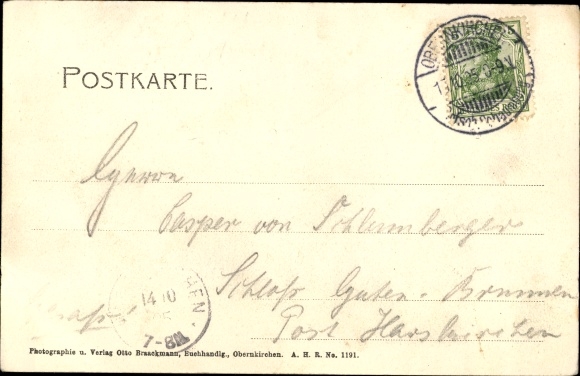 POSTKARTE.
OBERNKIRCHEN
5
Casper von Schlumberger
Schloß Guten-Brunnen
Post Harskirchen
14 10
7-8N
Photographie u. Verlag Otto Braackmann, Buchhandlg., Obernkirchen. A. H. R. No. 1191.